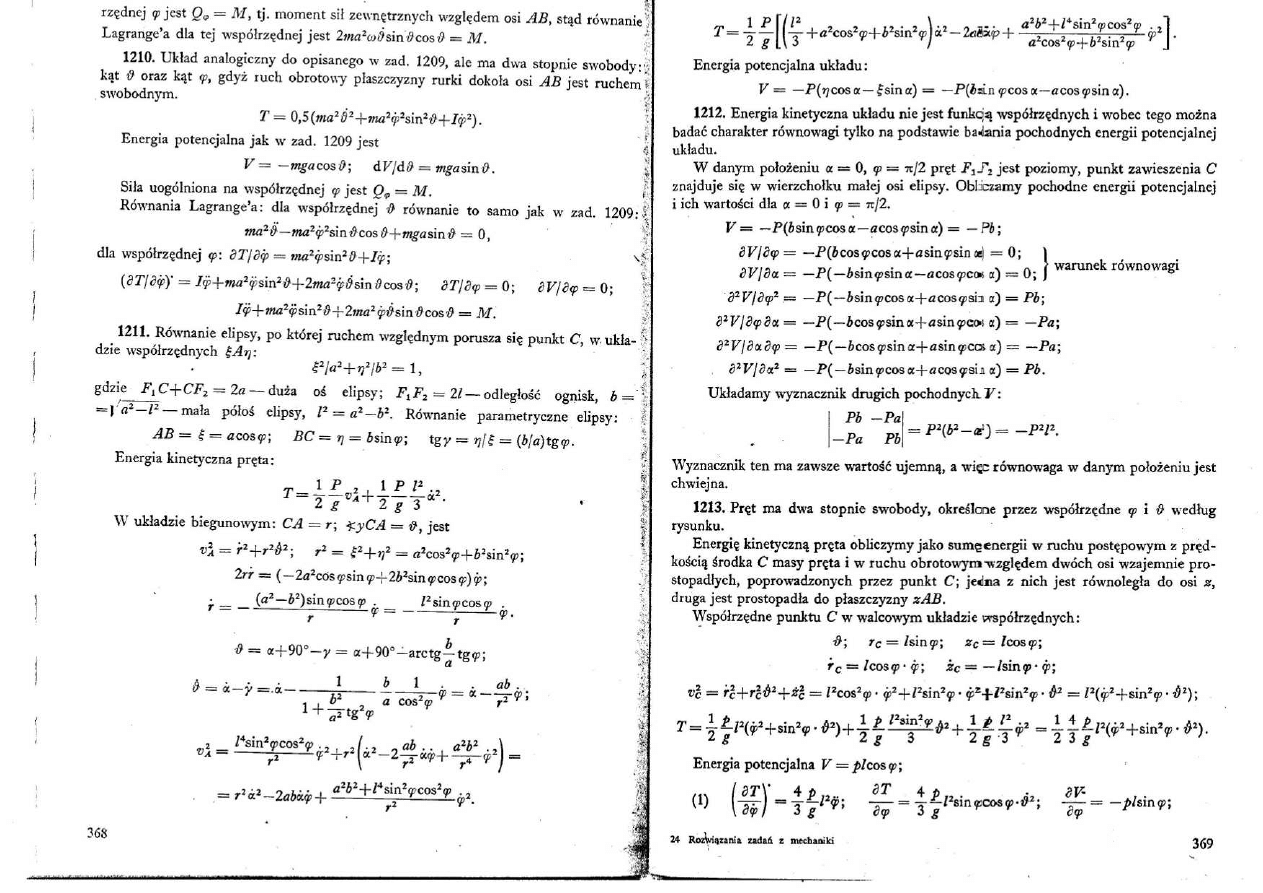 rzędnej φ jest Qφ = M, tj. moment sił zewnętrznych względem osi AB, stąd równanie
Lagrange'a dla tej współrzędnej jest 2ma²ωϑ̇ sin ϑ cos ϑ = M.
1210. Układ analogiczny do opisanego w zad. 1209, ale ma dwa stopnie swobody:
kąt ϑ oraz kąt φ, gdyż ruch obrotowy płaszczyzny rurki dokoła osi AB jest ruchem
swobodnym.
T = 0,5(ma²ϑ̇²+ma²φ̇²sin²ϑ+Iφ̇²).
Energia potencjalna jak w zad. 1209 jest
V = −mga cos ϑ; dV/dϑ = mga sin ϑ.
Siła uogólniona na współrzędnej φ jest Qφ = M.
Równania Lagrange'a: dla współrzędnej ϑ równanie to samo jak w zad. 1209:
ma²ϑ̈−ma²φ̇²sin ϑ cos ϑ+mga sin ϑ = 0,
dla współrzędnej φ: ∂T/∂φ̇ = ma²φ̇ sin²ϑ+Iφ̇;
(∂T/∂φ̇)˙ = Iφ̈+ma²φ̈ sin²ϑ+2ma²φ̇ϑ̇ sin ϑ cos ϑ; ∂T/∂φ = 0; ∂V/∂φ = 0;
Iφ̈+ma²φ̈ sin²ϑ+2ma²φ̇ϑ̇ sin ϑ cos ϑ = M.
1211. Równanie elipsy, po której ruchem względnym porusza się punkt C, w ukła-
dzie współrzędnych ξAη:
ξ²/a²+η²/b² = 1,
gdzie F₁C+CF₂ = 2a — duża oś elipsy; F₁F₂ = 2l — odległość ognisk, b =
=√a²−l² — mała półoś elipsy, l² = a²−b². Równanie parametryczne elipsy:
AB = ξ = a cos φ; BC = η = b sin φ; tg γ = η/ξ = (b/a) tg φ.
Energia kinetyczna pręta:
T = 1/2 P/g v²_A + 1/2 P/g l²/3 α̇².
W układzie biegunowym: CA = r; ∢yCA = ϑ, jest
v²_A = ṙ²+r²ϑ̇²; r² = ξ²+η² = a²cos²φ+b²sin²φ;
2rṙ = (−2a²cos φ sin φ+2b²sin φ cos φ) φ̇;
ṙ = − (a²−b²)sin φ cos φ / r φ̇ = − l² sin φ cos φ / r φ̇.
ϑ = α+90°−γ = α+90°−arctg b/a tg φ;
ϑ̇ = α̇−γ̇ = α̇− 1/(1+ b²/a² tg²φ) b/a 1/cos²φ φ̇ = α̇− ab/r² φ̇;
v²_A = l⁴sin²φcos²φ/r² φ̇²+r²(α̇²−2 ab/r² α̇φ̇+ a²b²/r⁴ φ̇²) =
= r²α̇²−2abα̇φ̇+ (a²b²+l⁴sin²φcos²φ)/r² φ̇².
368
T = 1/2 P/g [(l²/3 +a²cos²φ+b²sin²φ)α̇²−2abα̇φ̇+ (a²b²+l⁴sin²φcos²φ)/(a²cos²φ+b²sin²φ) φ̇²].
Energia potencjalna układu:
V = −P(η cos α−ξ sin α) = −P(b sin φ cos α−a cos φ sin α).
1212. Energia kinetyczna układu nie jest funkcją współrzędnych i wobec tego można
badać charakter równowagi tylko na podstawie badania pochodnych energii potencjalnej
układu.
W danym położeniu α = 0, φ = π/2 pręt F₁F₂ jest poziomy, punkt zawieszenia C
znajduje się w wierzchołku małej osi elipsy. Obliczamy pochodne energii potencjalnej
i ich wartości dla α = 0 i φ = π/2.
V = −P(b sin φ cos α−a cos φ sin α) = −Pb;
∂V/∂φ = −P(b cos φ cos α+a sin φ sin α) = 0;
∂V/∂α = −P(−b sin φ sin α−a cos φ cos α) = 0; } warunek równowagi
∂²V/∂φ² = −P(−b sin φ cos α+a cos φ sin α) = Pb;
∂²V/∂φ∂α = −P(−b cos φ sin α+a sin φ cos α) = −Pa;
∂²V/∂α∂φ = −P(−b cos φ sin α+a sin φ cos α) = −Pa;
∂²V/∂α² = −P(−b sin φ cos α+a cos φ sin α) = Pb.
Układamy wyznacznik drugich pochodnych V:
| Pb −Pa |
| −Pa Pb | = P²(b²−a²) = −P²l².
Wyznacznik ten ma zawsze wartość ujemną, a więc równowaga w danym położeniu jest
chwiejna.
1213. Pręt ma dwa stopnie swobody, określone przez współrzędne φ i ϑ według
rysunku.
Energię kinetyczną pręta obliczymy jako sumę energii w ruchu postępowym z pręd-
kością środka C masy pręta i w ruchu obrotowym względem dwóch osi wzajemnie pro-
stopadłych, poprowadzonych przez punkt C; jedna z nich jest równoległa do osi z,
druga jest prostopadła do płaszczyzny zAB.
Współrzędne punktu C w walcowym układzie współrzędnych:
ϑ; r_C = l sin φ; z_C = l cos φ;
ṙ_C = l cos φ · φ̇; ż_C = −l sin φ · φ̇;
v²_C = ṙ²_C+r²_Cϑ̇²+ż²_C = l²cos²φ · φ̇²+l²sin²φ · φ̇²+l²sin²φ · ϑ̇² = l²(φ̇²+sin²φ · ϑ̇²);
T = 1/2 p/g l²(φ̇²+sin²φ · ϑ̇²)+ 1/2 p/g l²sin²φ/3 ϑ̇²+ 1/2 p/g l²/3 φ̇² = 1/2 4/3 p/g l²(φ̇²+sin²φ · ϑ̇²).
Energia potencjalna V = pl cos φ;
(1) (∂T/∂φ̇)˙ = 4/3 p/g l²φ̈; ∂T/∂φ = 4/3 p/g l²sin φ cos φ · ϑ̇²; ∂V/∂φ = −pl sin φ;
24 Rozwiązania zadań z mechaniki
369